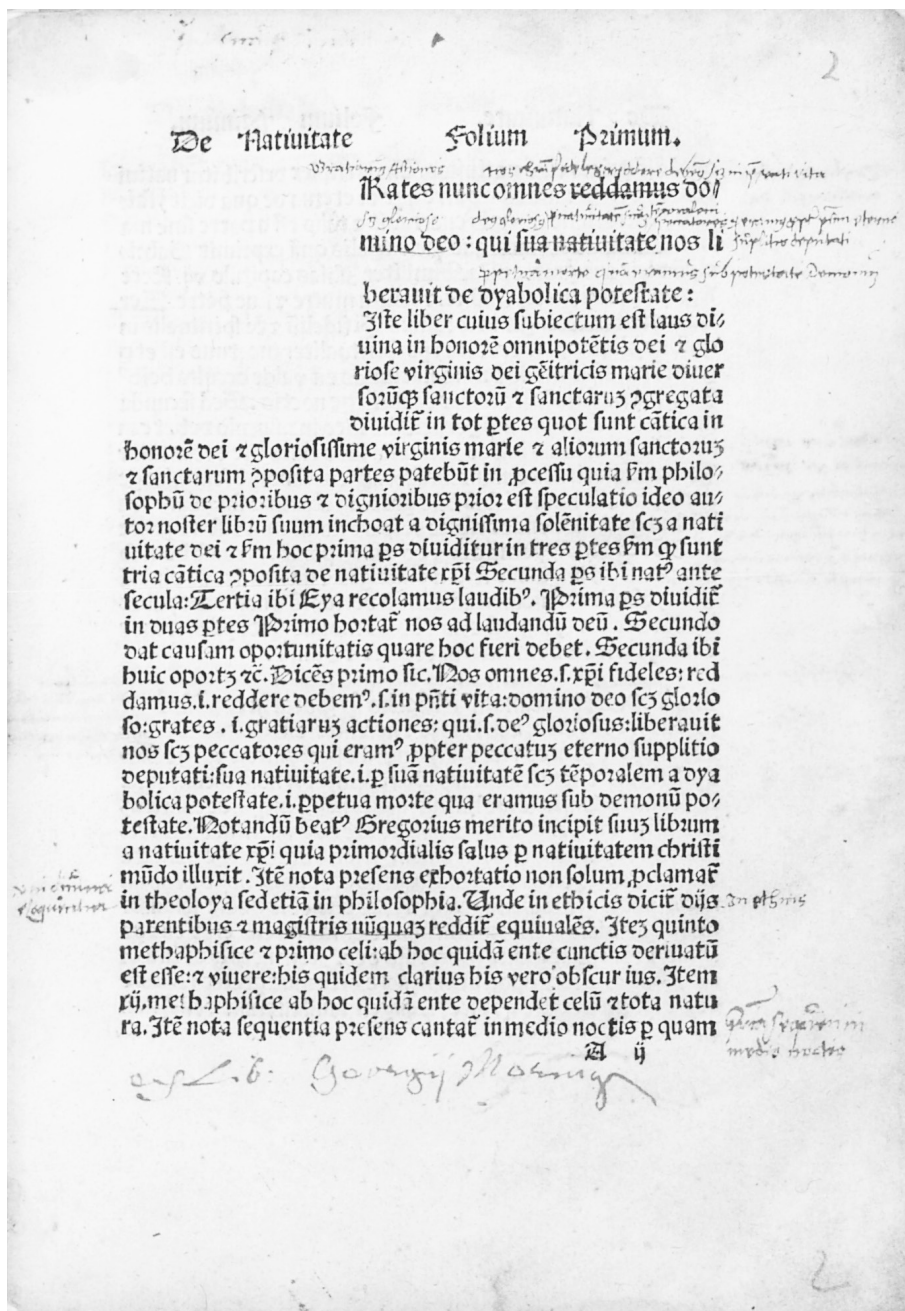 2
De Nativitate Folium Primum.
Rates nunc omnes reddamus do⸗
mino deo : qui sua nativitate nos li
beravit de dyabolica potestate :
Iste liber cuius subiectum est laus di⸗
uina in honorē omnipotētis dei ⁊ glo
riose virginis dei gēitricis marie diuer
sorūqꝫ sanctorū ⁊ sanctaruꝫ ꝯgregata
dividit̄ in tot ꝑtes quot sunt cātica in
honorē dei ⁊ gloriosissime virginis marie ⁊ aliorum sanctoruꝫ
⁊ sanctarum ꝯposita partes patebūt in ꝓcessu quia ẜm philo⸗
sophū de prioribus ⁊ dignioribus prior est speculatio ideo au⸗
tor noster librū suum inchoat a dignissima solēnitate scꝫ a nati
uitate dei ⁊ ẜm hoc prima ꝑs dividitur in tres ꝑtes ẜm ꝙ sunt
tria cātica ꝯposita de nativitate xp̄i Secunda ꝑs ibi natꝰ ante
secula: Tertia ibi Eya recolamus laudibꝰ. Prima ꝑs dividit̄
in duas ꝑtes Primo hortat̄ nos ad laudandū deū . Secundo
dat causam oportunitatis quare hoc fieri debet. Secunda ibi
huic oportꝫ ⁊c̄. Dicēs primo sic. Nos omnes .s. xp̄i fideles: red
damus .i. reddere debemꝰ .s. in pn̄ti vita: domino deo scꝫ glorio
so: grates . i. gratiaruꝫ actiones: qui .s. deꝰ gloriosus: liberauit
nos scꝫ peccatores qui eramꝰ ꝓpter peccatuꝫ eterno supplitio
deputati: sua nativitate .i. ꝑ suā nativitatē scꝫ tēporalem a dya
bolica potestate .i. ꝑpetua morte qua eramus sub demonū po⸗
testate. Notandū beatꝰ Gregorius merito incipit suuꝫ librum
a nativitate xp̄i quia primordialis salus ꝑ nativitatem christi
mūdo illuxit . Itē nota presens exhortatio non solum ꝓclamat̄
in theoloya sed etiā in philosophia. Unde in ethicis dicit̄ dijs
parentibus ⁊ magistris nūquaꝫ reddit̄ equivalēs. Iteꝫ quinto
methaphisice ⁊ primo celi: ab hoc quidā ente cunctis derivatū
est esse: ⁊ vivere: his quidem clarius his vero obscur ius. Item
xij. methaphisice ab hoc quidā ente dependet celū ⁊ tota natu
ra. Itē nota sequentia presens cantat̄ in medio noctis ꝑ quam
A ij
ex Lib: Georgij
2